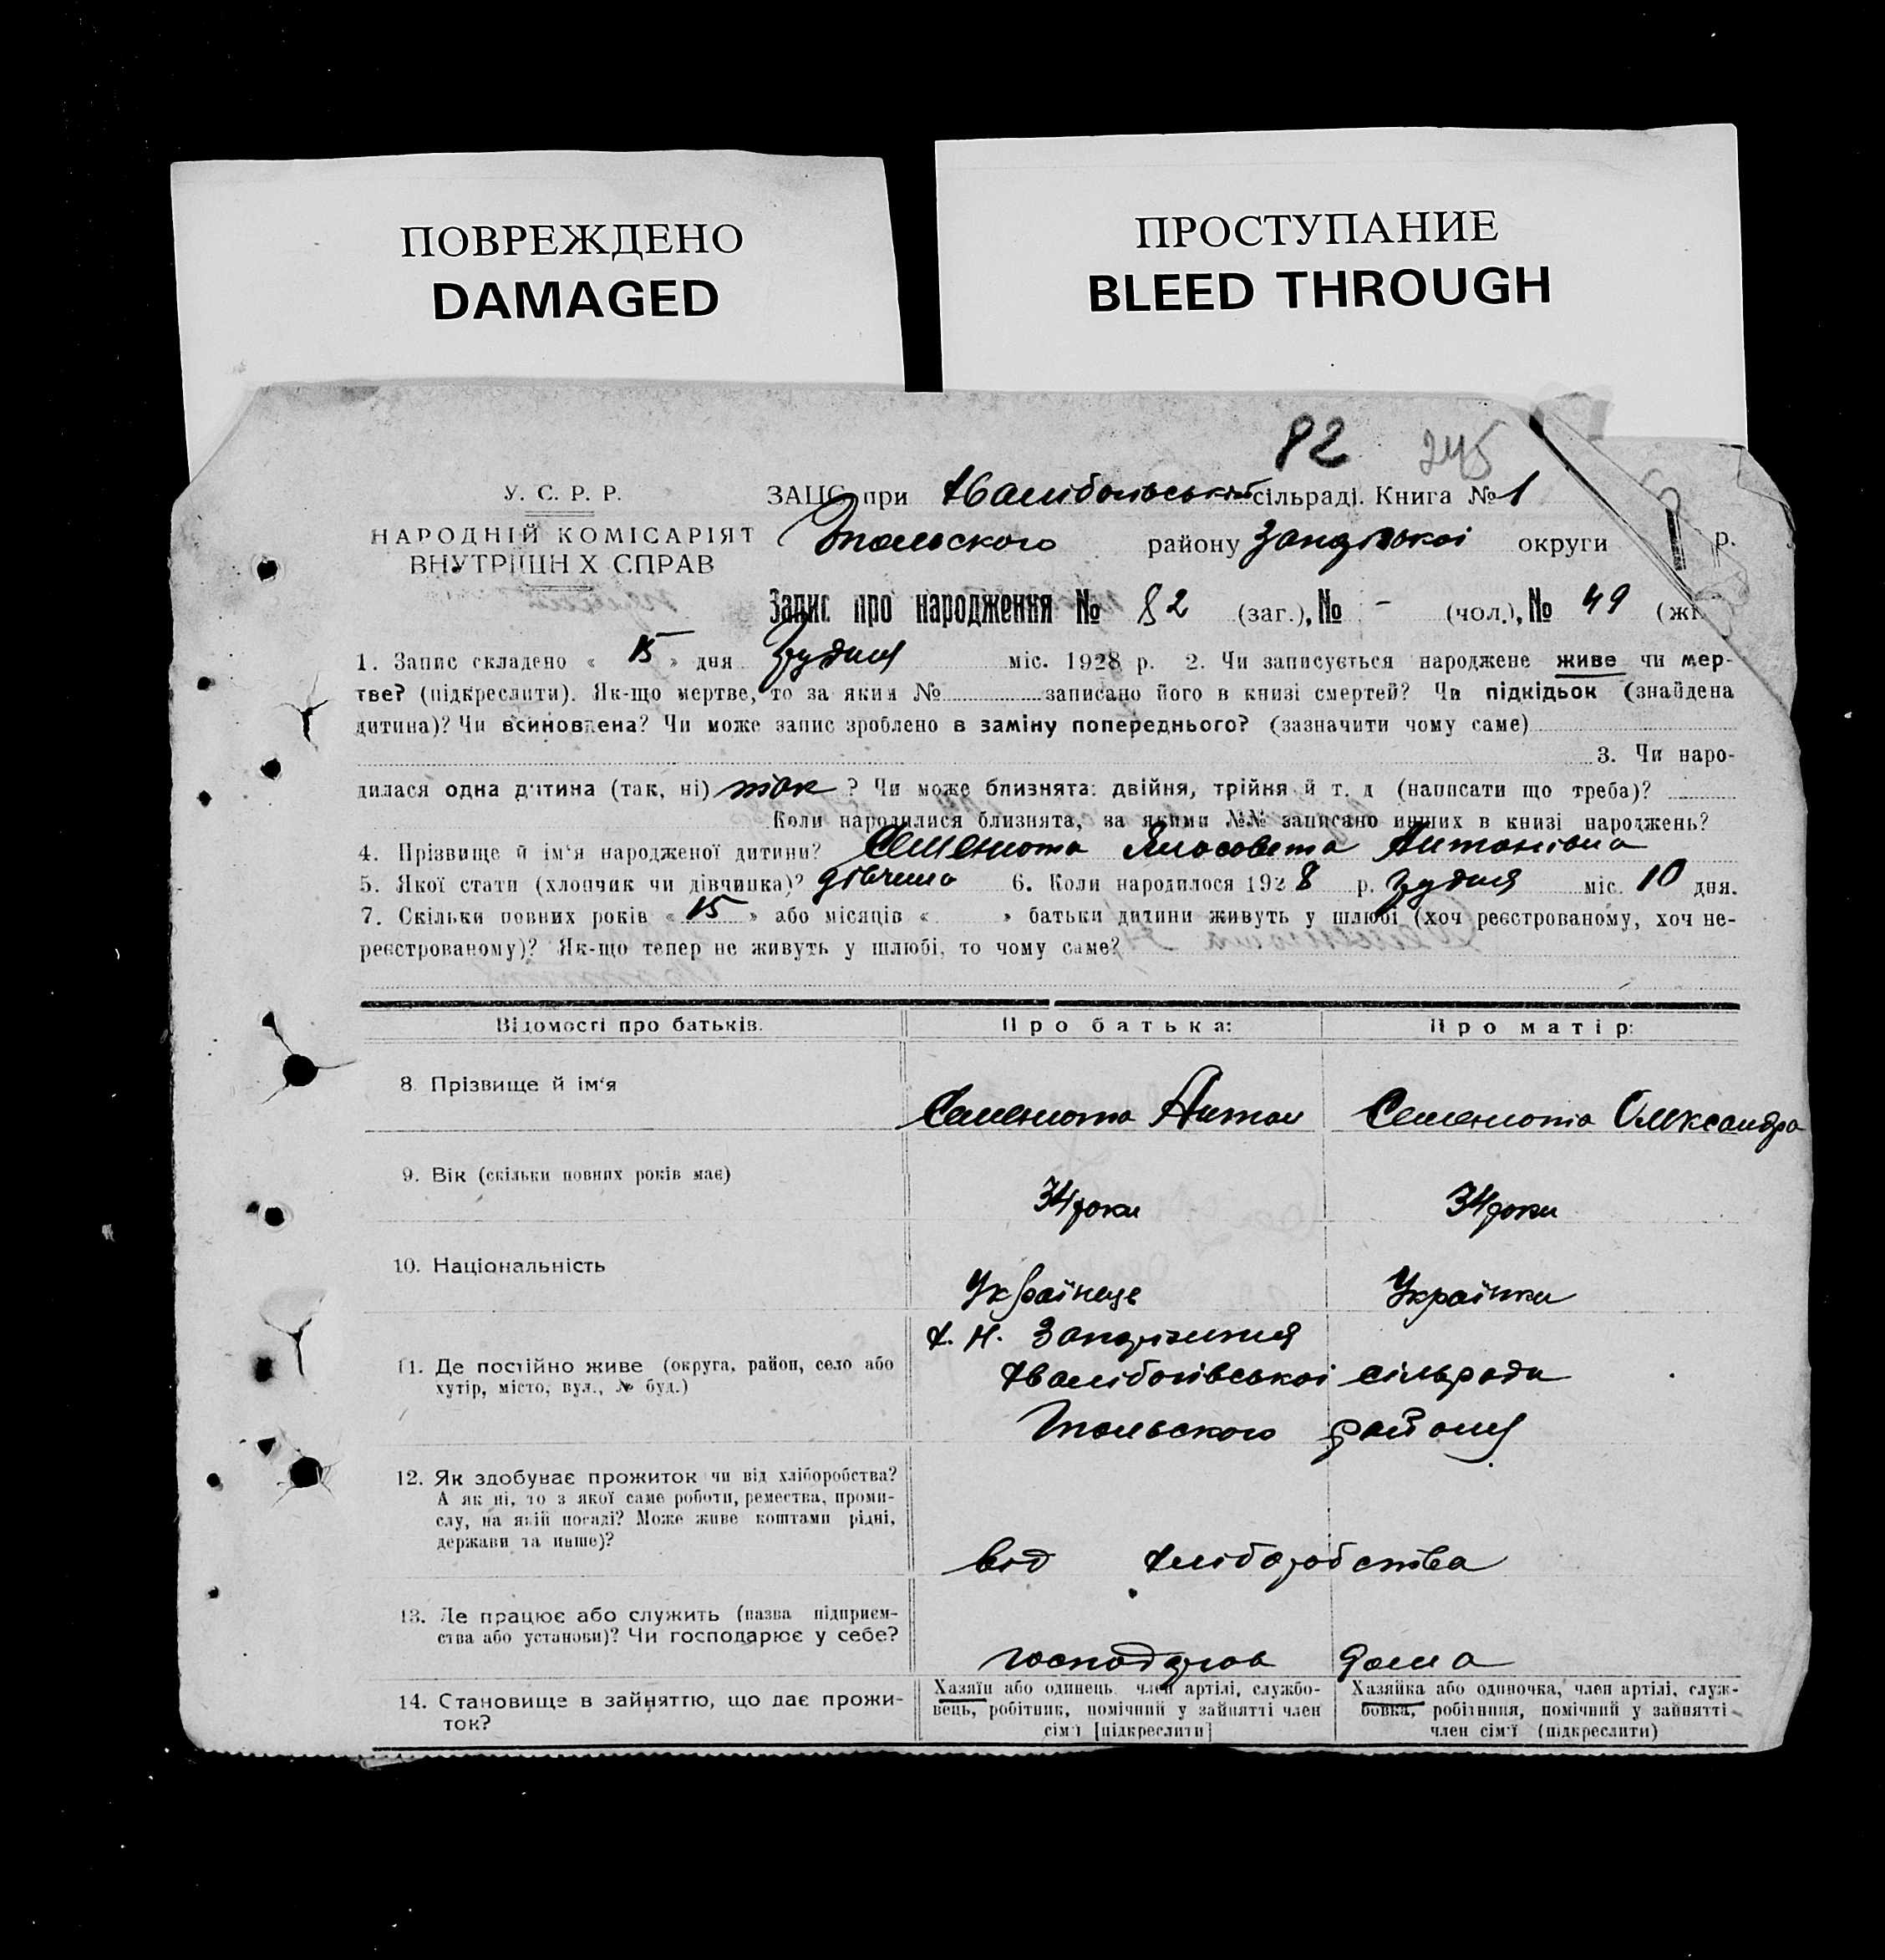 ПОВРЕЖДЕНО
DAMAGED
ПРОСТУПАНИЕ
BLEED THROUGH
82 245
У. С. Р. Р.
ЗАЦС при сільраді. Книга № 1
НАРОДНІЙ КОМІСАРІЯТ
району округи р.
ВНУТРІШН Х СПРАВ
Запис про народження № 82 (заг.), № - (чол.), № 49 (жі
1. Запис складено « 15 » дня Грудня міс. 1928 р. 2. Чи записується народжене живе чи мер-
тве? (підкреслити). Як-що мертве, то за яким № записано його в книзі смертей? Чи підкідьок (знайдена
дитина)? Чи всиновлена? Чи може запис зроблено в заміну попереднього? (зазначити чому саме)
3. Чи наро-
дилася одна дитина (так, ні) так ? Чи може близнята: двійня, трійня й т. д (написати що треба)?
Коли народилися близнята, за якими №№ записано инших в книзі народжень?
4. Прізвище й ім'я народженої дитини? Семенюта Антонівна
5. Якої стати (хлопчик чи дівчинка)? дівчина 6. Коли народилося 1928 р. Грудня міс. 10 дня.
7. Скільки повних років « 15 » або місяців « » батьки дитини живуть у шлюбі (хоч реєстрованому, хоч не-
реєстрованому)? Як-що тепер не живуть у шлюбі, то чому саме?
Відомості про батьків. Про батька: Про матір:
8. Прізвище й ім'я
Семенюта Антон Семенюта Олександра
9. Вік (скільки повних років має)
34 роки 34 роки
10. Національність
Українець Українка
х. Н. Запоріжжя
11. Де постійно живе (округа, район, село або
хутір, місто, вул., № буд.)
сільради
району
12. Як здобуває прожиток чи від хліборобства?
А як ні, то з якої саме роботи, ремества, проми-
слу, на якій посаді? Може живе коштами рідні,
держави та инше)?
від хліборобства
13. Де працює або служить (назва підприєм-
ства або установи)? Чи господарює у себе?
дома
14. Становище в зайняттю, що дає прожи-
ток?
Хазяїн або одинець член артілі, службо-
вець, робітник, помічний у зайнятті член
сім'ї [підкреслити]
Хазяйка або одиночка, член артілі, служ-
бовка, робітниця, помічний у зайнятті
член сім'ї (підкреслити)